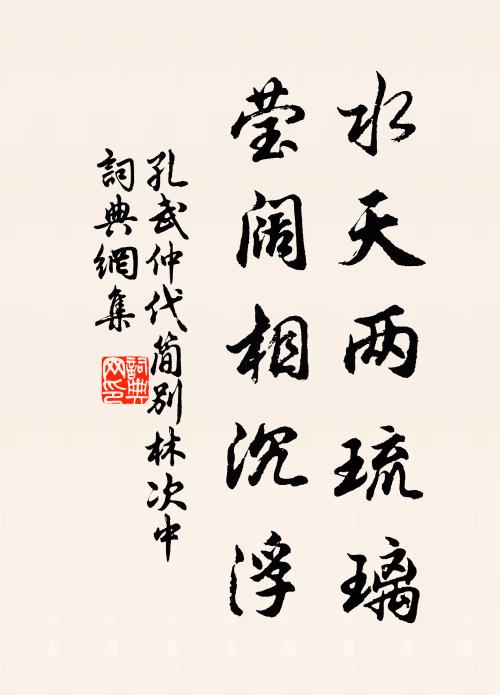 水天两琉璃
莹阔相沉浮
孔武仲代简别林次中
詞典網集
詞典
网印